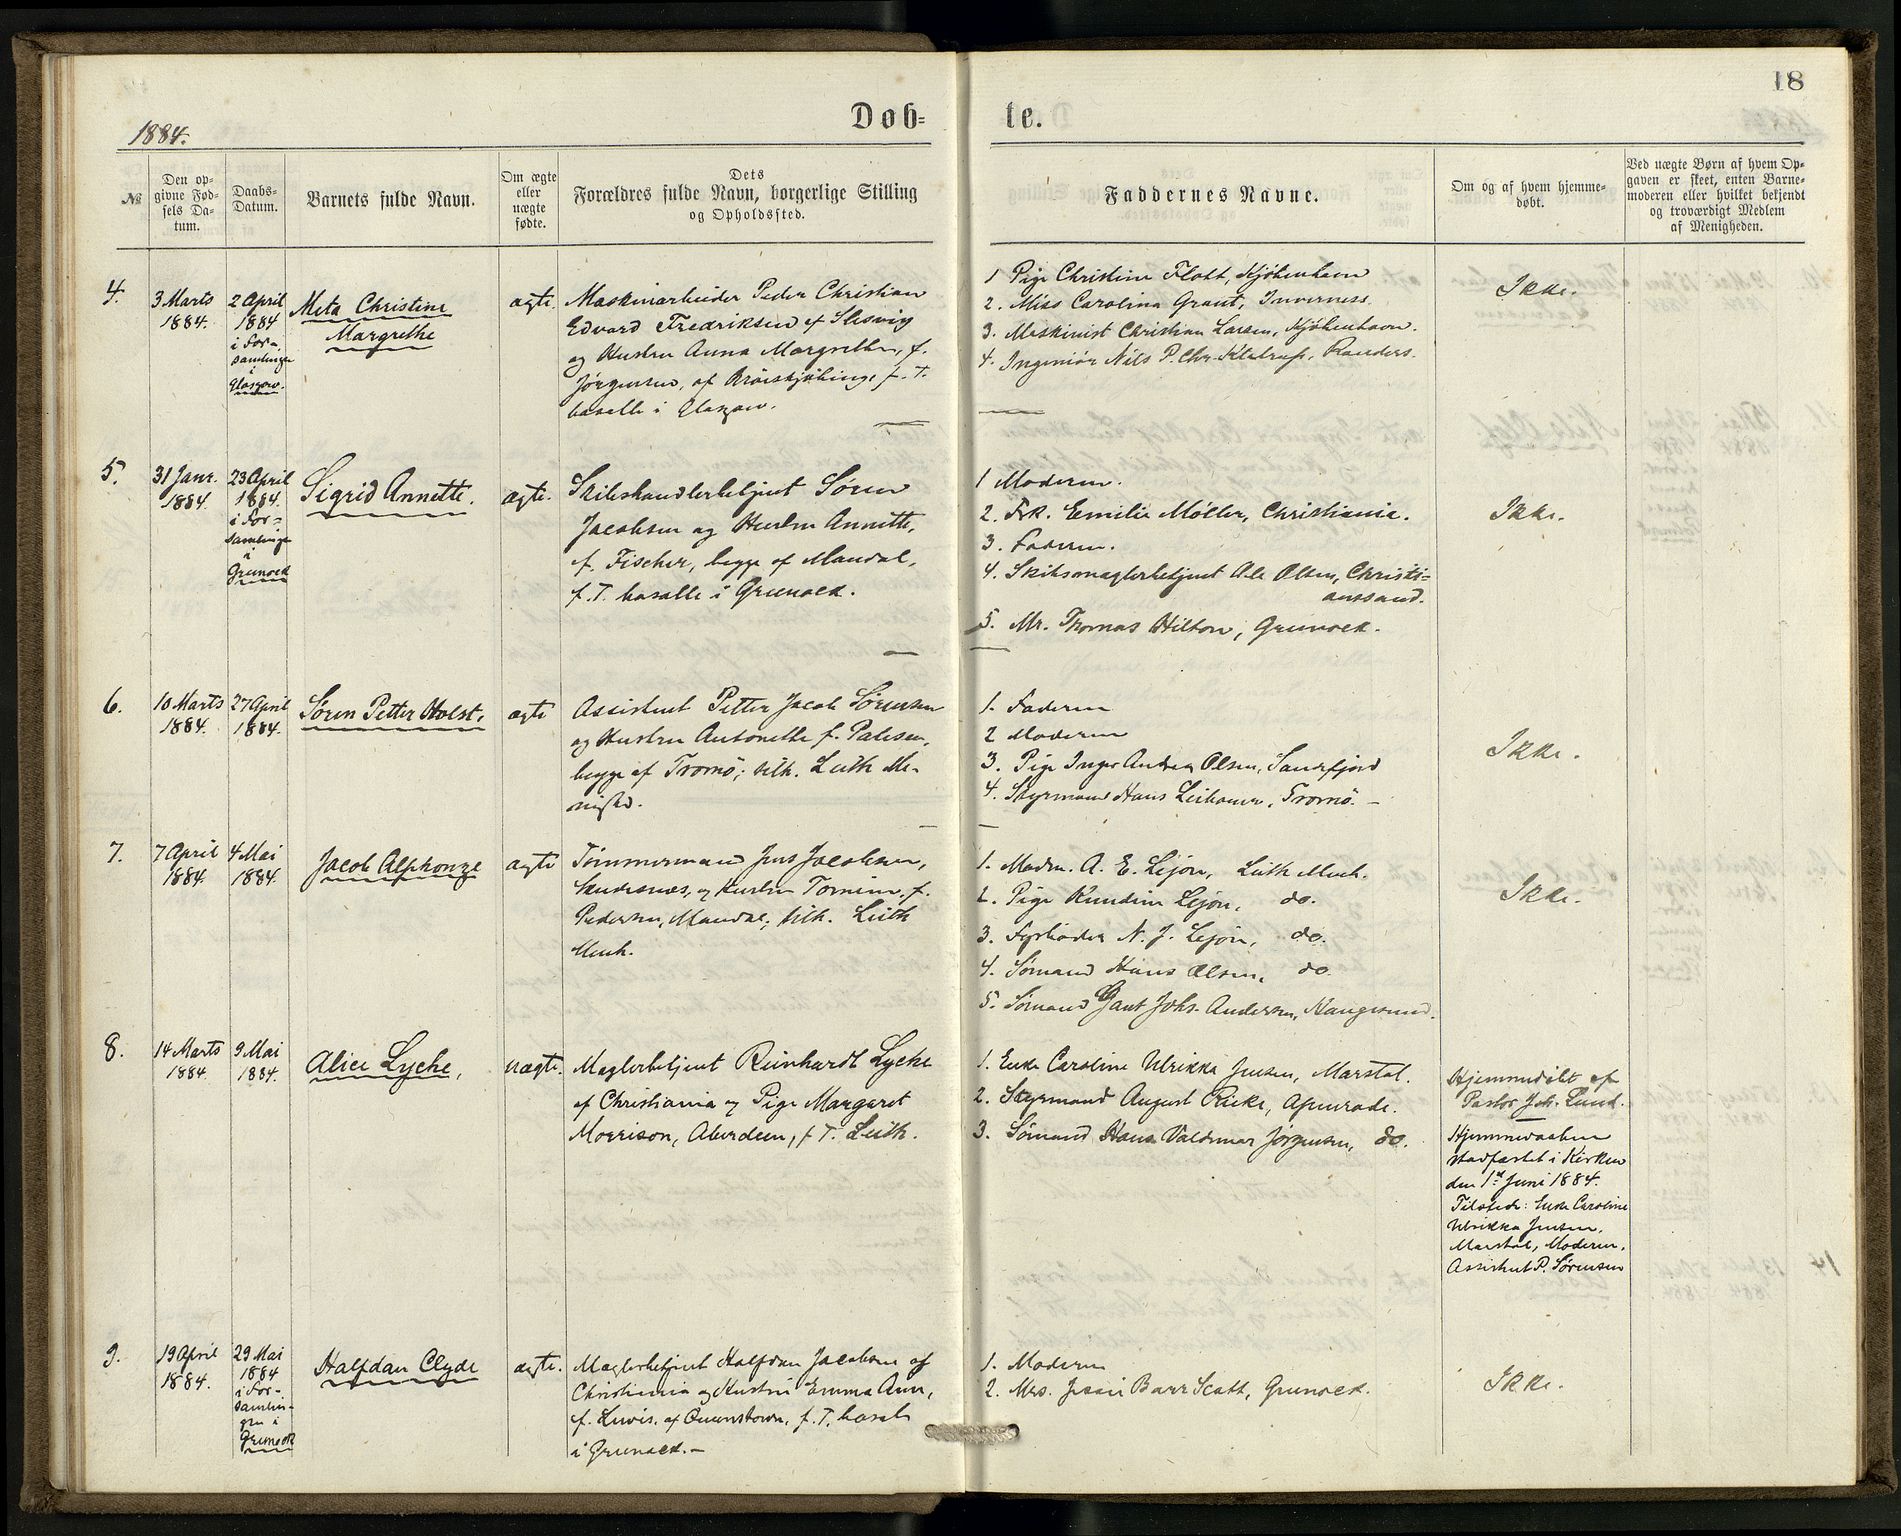 18
Døb=
te.
1884.
№
Den op-
givne Fød-
sels Da-
tum.
Daabs-
Datum.
Barnets fulde Navn.
Om ægte
eller
uægte
fødte.
Dets
Forældres fulde Navn, borgerlige Stilling
og Opholdssted.
Faddernes Navne.
Om og af hvem hjemme-
døbt.
Ved uægte Børn af hvem Op-
gaven er skeet, enten Barne-
moderen eller hvilket bekjendt
og troværdigt Medlem
af Menigheden.
4.
3 Marts
1884.
2 April
1884
i For-
samlingen
i
Glasgow.
Meta Christine
Margrethe
ægte.
Maskinarbeider Peder Christian
Edvard Fredriksen af Slesvig
og Hustru Anna Margrethe, f.
Jörgensen, af Ærøeskjøbing, f. T.
bosatte i Glasgow.
1 Pige Christine Flott, Kjöbenhavn
2. Miss Carolina Grant, Inverness.
3. Maskinist Christian Larsen, Kjöbenhavn.
4. Ingeniör Nils P. Chr. Randers.
Ikke.
5.
31 Janr.
1884.
23 April
1884.
i For-
samlingen
i
Greenock
Sigrid Annette.
ægte.
Skibshandlerbetjent Sören
Jacobsen og Hustru Annette,
f. Fischer, begge af Mandal,
f. T. bosatte i Greenock.
1 Moderen.
2. Frk. Emilie Möller, Christiania.
3. Faderen.
4. Skibsmæglerbetjent Ale Olsen, Christi=
anssand.
5. Mr. Thomas Hilton, Greenock.
Ikke.
6.
10 Marts
1884.
27 April
1884.
Sören Petter Holst.
ægte
Assistent Petter Jacob Sörensen
og Hustru Antonette f. Palesen,
begge af Tromö; tilh. Leith Me-
nighed.
1. Faderen
2 Moderen
3. Pige Inger Andrea Olsen, Sandefjord
4. Styrmand Hans Tromö. –
Ikke.
7.
7 April
1884.
4 Mai
1884.
Jacob Alphonze
ægte
Tömmermand Jens Jacobsen,
Skudesnæs, og Hustru Tomine, f.
Pedersen, Mandal; tilh. Leith
Menh.
1. Madm. A. E. Lejön, Leith Menh.
2. Pige Kundine Lejön, do.
3. Fyrböder N. J. Lejön, do.
4. Sömand Hans Olsen, do
5. Sömand Gant Johs. Andersen, Haugesund.
Ikke.
8.
14 Marts
1884.
9 Mai
1884.
Alice Lyche,
uægte.
Mæglerbetjent Reinhardt Lyche
af Christiania og Pige Margaret
Morrison, Aberdeen, f. T. Leith.
1. Enke Caroline Ulrikka Jensen, Marstal.
2. Styrmand August Fricke, Apenrade.
3. Sömand Hans Valdemar Jörgensen, do.
Hjemmedöbt af
Pastor Joh. Lund.
Hjemmedaaben
stadfæstet i Kirken
den 1st Juni 1884.
Tilstede: Enke Caroline
Ulrikka Jensen,
Marstal, Moderen,
Assistent P. Sörensen
9.
19 April
1884.
29 Mai
1884
i For-
samlin-
gen i
Greenock
Halfdan Clyde
ægte.
Mæglerbetjent Halfdan Jacobsen af
Christiania og Hustru Emma Ann,
f. Lewis, af Queenstown, f. T. bosat
i Greenock. –
1. Moderen
2. Mrs. Jessie Barr Scott, Greenock.
Ikke.